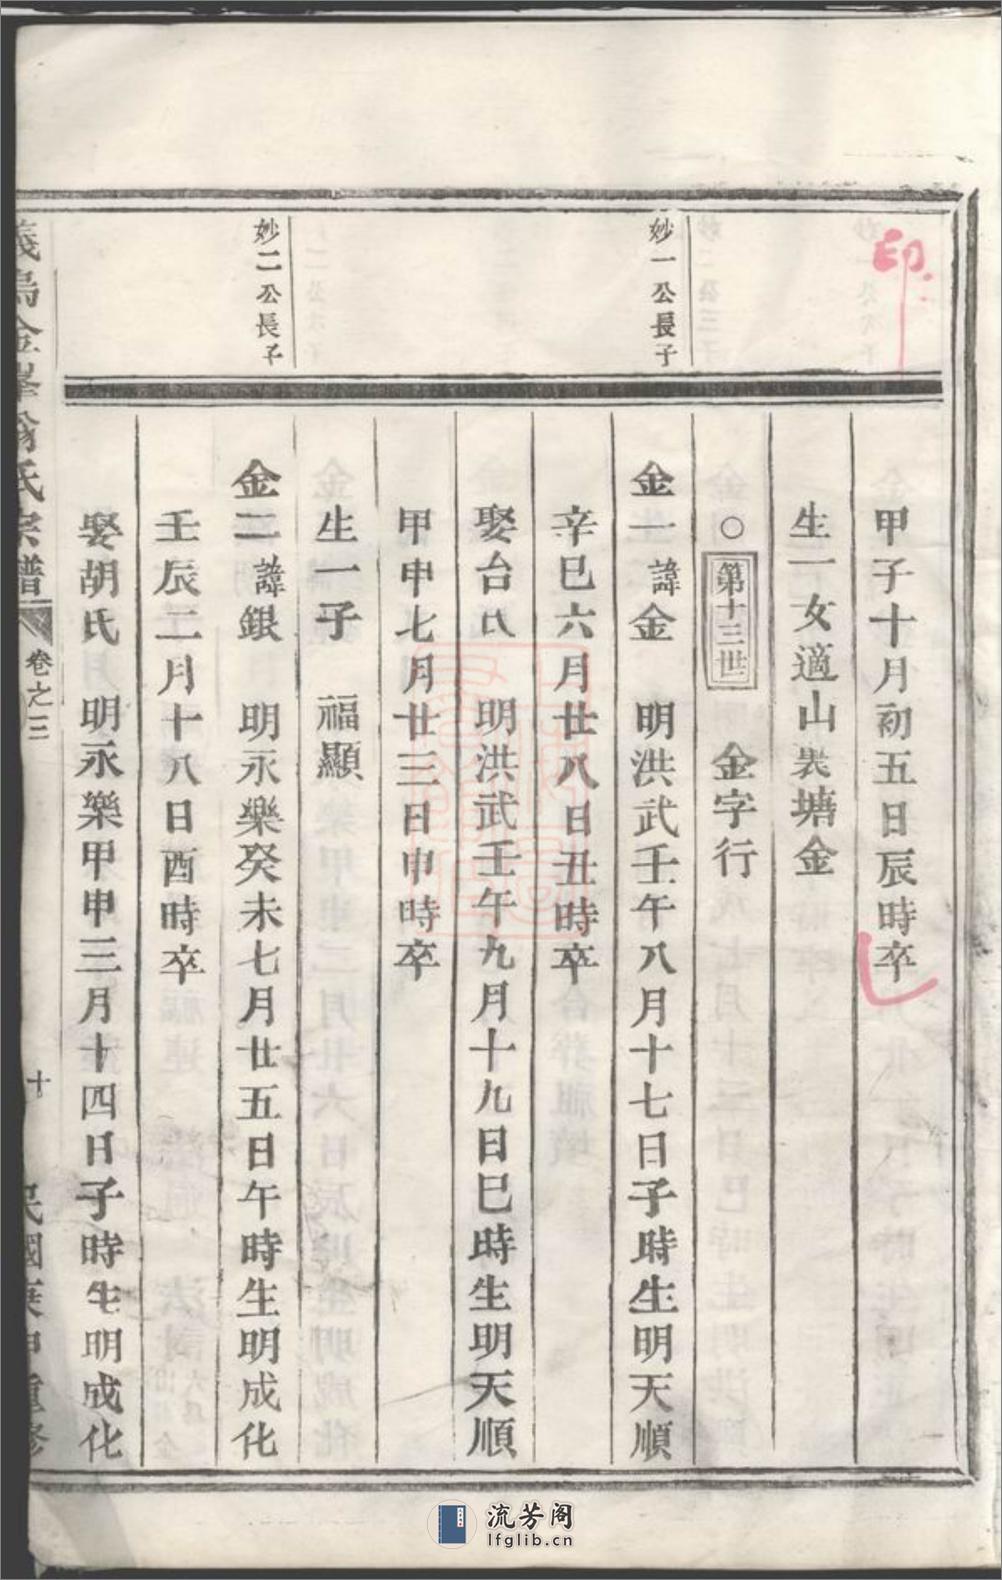 印
甲子十月初五日辰時卒
生一女適山裝塘金
○第十三世 金字行
妙一公長子
金一諱金 明洪武壬午八月十七日子時生明天順
辛巳六月廿八日丑時卒
娶台氏 明洪武壬午九月十九日巳時生明天順
甲申七月廿三日申時卒
生一子 福顯
妙二公長子
金二諱銀 明永樂癸未七月廿五日午時生明成化
壬辰二月十八日酉時卒
娶胡氏 明永樂甲申三月十四日子時生明成化
義烏金峯翁氏宗譜 卷之三 十 民國 重修
流芳阁
lfglib.cn